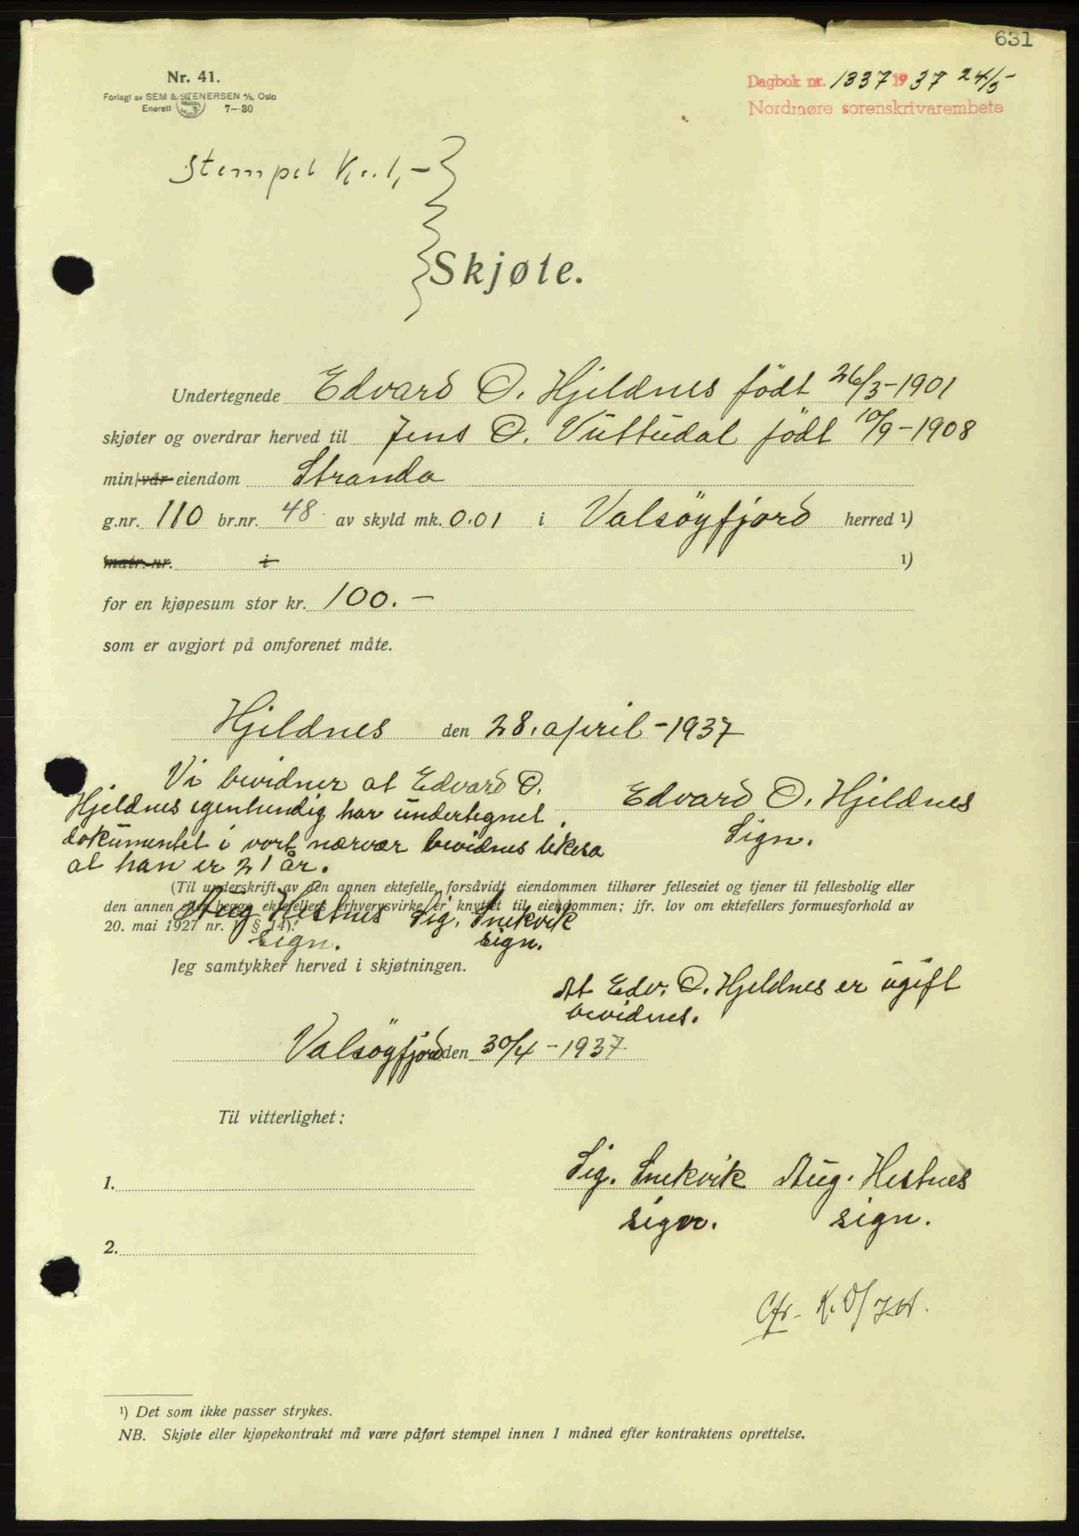 631
Nr. 41.
Forlagt av SEM & STENERSEN A/S, Oslo
Enerett S 7-30
Dagbok nr. 1337 1937 24/5
Nordmøre sorenskrivarembete
Stempel Kr. 1,-
Skjøte.
Undertegnede Edvard O. Hjeldnes født 26/3-1901
skjøter og overdrar herved til Jens O. Vuttudal født 10/9-1908
min/vår eiendom Stranda
g.nr. 110 br.nr. 48 av skyld mk. 0.01 i Valsøyfjord herred ¹)
matr. nr. i ¹)
for en kjøpesum stor kr. 100.-
som er avgjort på omforenet måte.
Hjeldnes den 28. april -1937
Vi bevidner at Edvard O.
Hjeldnes egenhendig har undertegnet
dokumentet i vort nærvær bevidnes likesa
at han er 21 år.
Edvard O. Hjeldnes
Sign.
(Til underskrift av den annen ektefelle, forsåvidt eiendommen tilhører felleseiet og tjener til fellesbolig eller
den annen eller begge ektefellers erhvervsvirke er knyttet til eiendommen; jfr. lov om ektefellers formuesforhold av
20. mai 1927 nr. 1 § 14).
Aug Hestnes Sig. Snekvik
sign. sign.
Jeg samtykker herved i skjøtningen.
At Edv. O. Hjeldnes er ugift
bevidnes.
Valsøyfjord den 30/4 -1937
Til vitterlighet:
Sig. Snekvik Aug. Hestnes
sign. sign.
1.
2.
Cfr.
¹) Det som ikke passer strykes.
NB. Skjøte eller kjøpekontrakt må være påført stempel innen 1 måned efter kontraktens oprettelse.